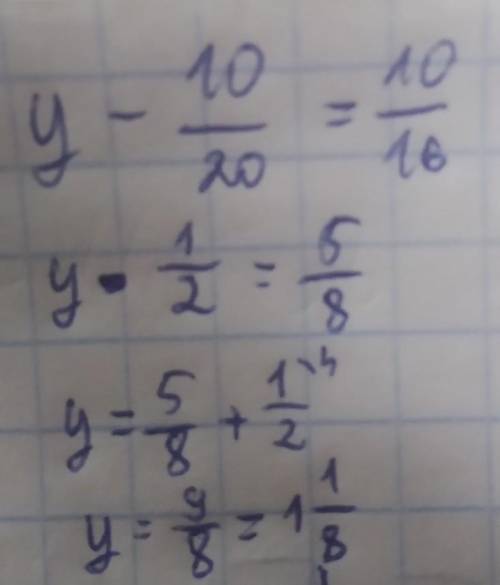 y - 10/20 = 10/16
y - 1/2 = 5/8
y = 5/8 + 1/2 \4
y = 9/8 = 1 1/8